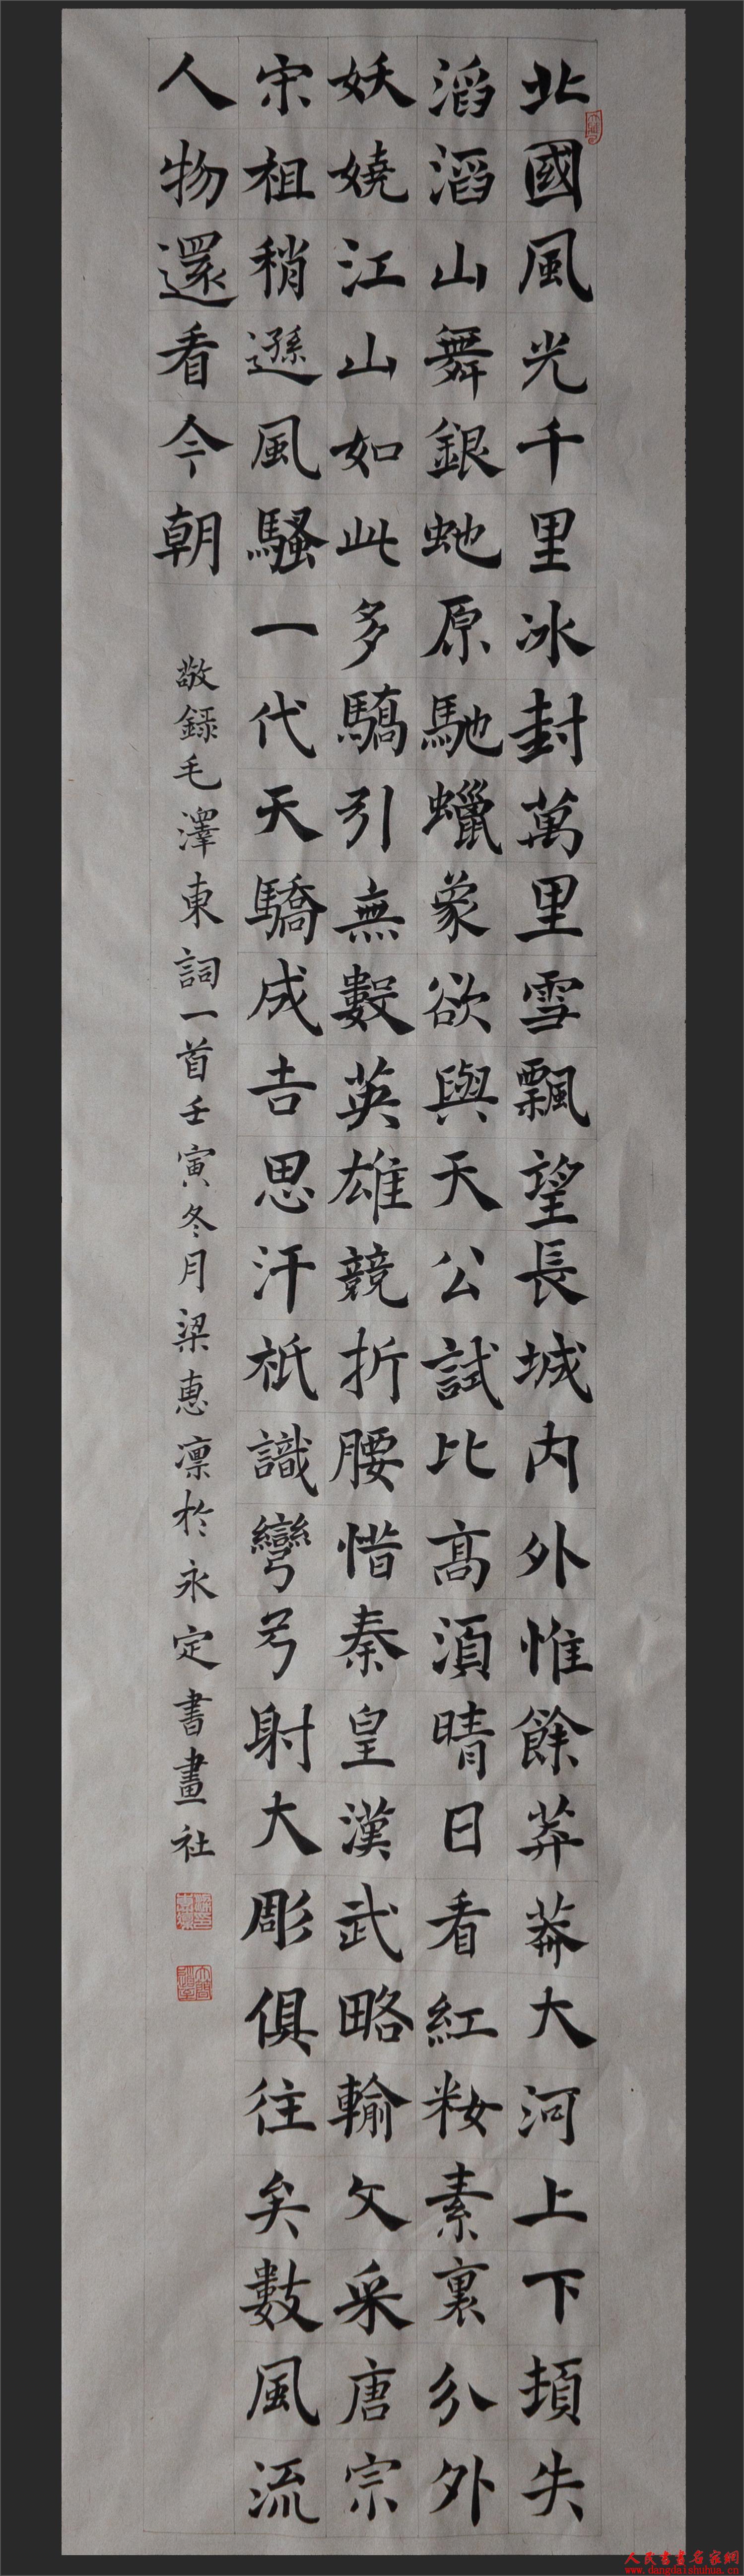 北國風光千里冰封萬里雪飄望長城内外惟餘莽莽大河上下頓失
滔滔山舞銀虵原馳蠟象欲與天公試比髙湏晴日看紅籹素裹分外
妖嬈江山如此多驕引無數英雄競折腰惜秦皇漢武略輸文采唐宗
宋祖稍遜風騷一代天驕成吉思汗祇識彎弓射大彫俱往矣數風流
人物還看今朝
敬錄毛澤東詞一首壬寅冬月梁惠凛於永定書畫社
人民書畫名家網
www.dangdaishuhua.cn